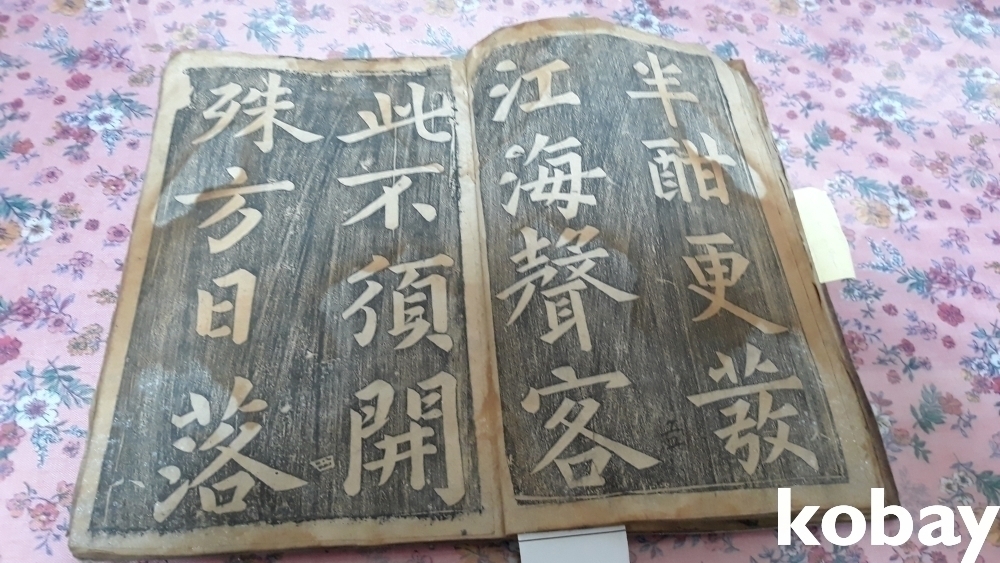 半酣更發
江海聲客
五
此不須開
四
殊方日落
kobay